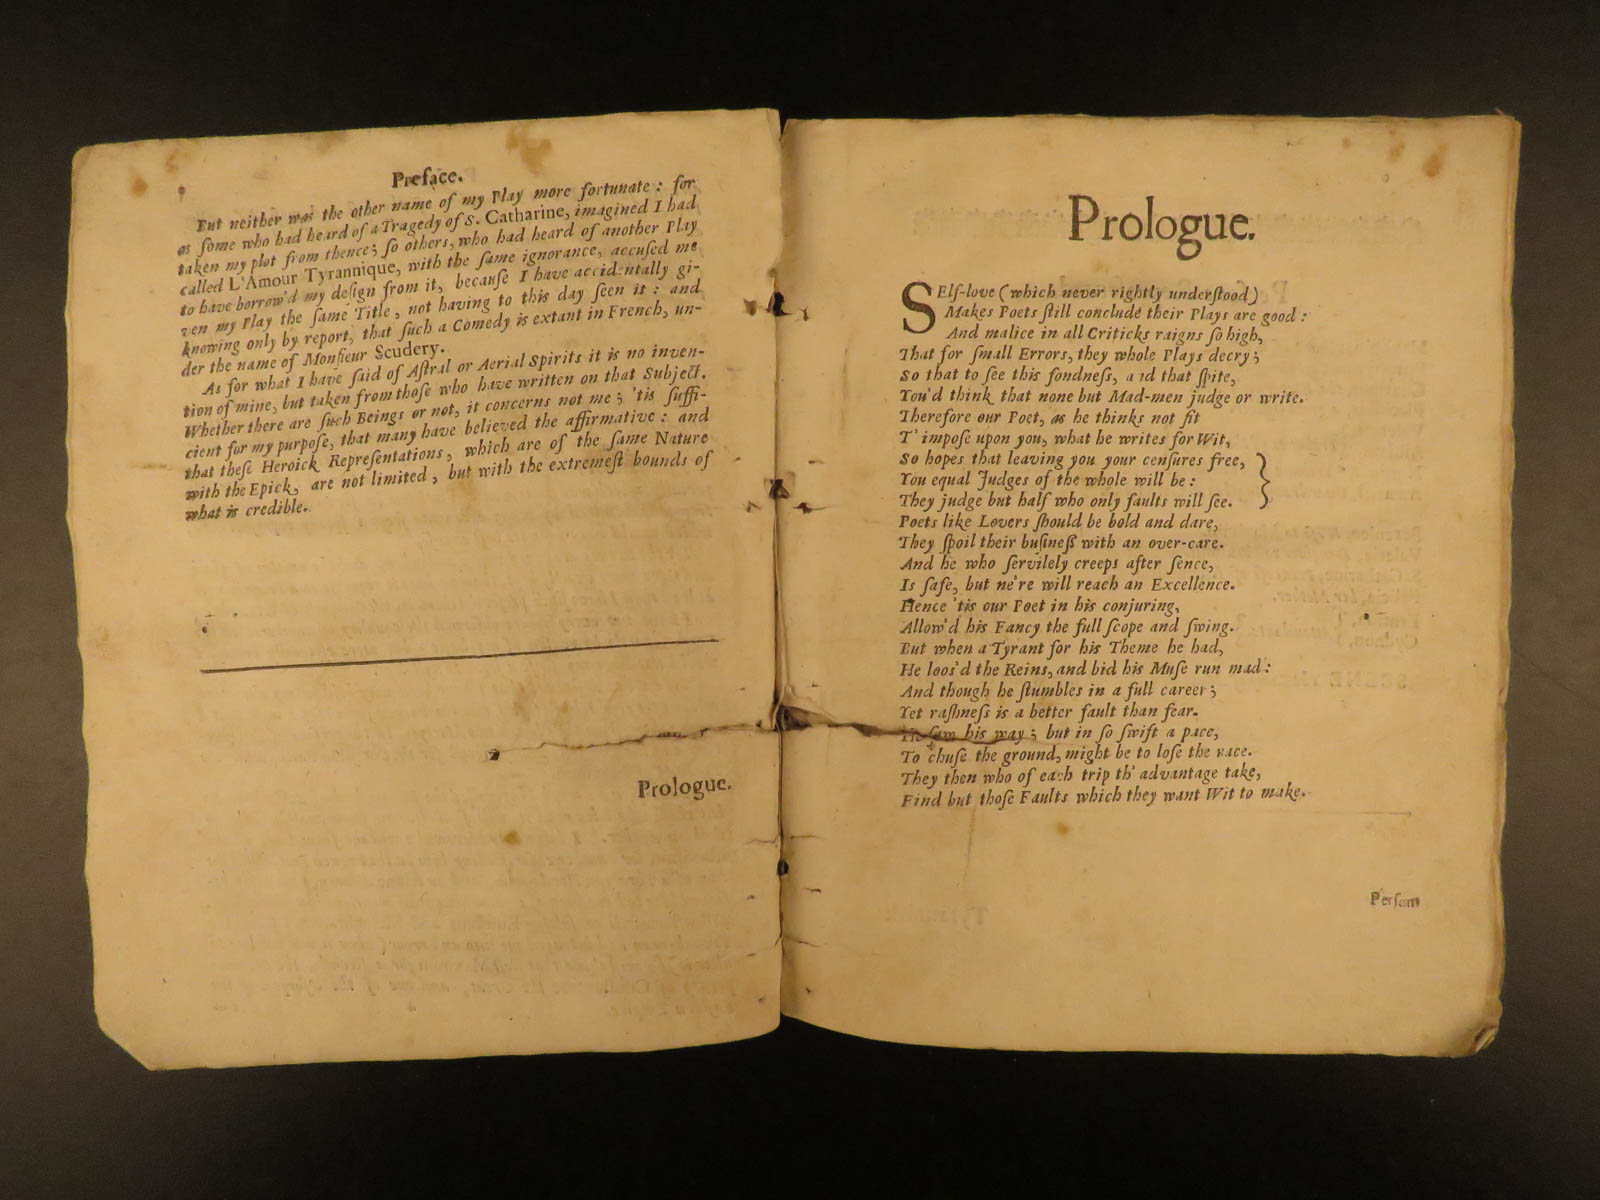 Preface.
But neither was the other name of my Play more fortunate: for
as ſome who had heard of a Tragedy of S. Catharine, imagined I had
taken my plot from thence; ſo others, who had heard of another Play
called L'Amour Tyrannique, with the ſame ignorance, accuſed me
to have borrow'd my deſign from it, becauſe I have accidentally gi-
ven my Play the ſame Title, not having to this day ſeen it: and
knowing only by report, that ſuch a Comedy is extant in French, un-
der the name of Monſieur Scudery.
As for what I have ſaid of Aſtral or Aerial Spirits it is no inven-
tion of mine, but taken from thoſe who have written on that Subject.
Whether there are ſuch Beings or not, it concerns not me; 'tis ſuffi-
cient for my purpoſe, that many have believed the affirmative: and
that theſe Heroick Repreſentations, which are of the ſame Nature
with the Epick, are not limited, but with the extremeſt bounds of
what is credible.
Prologue.
Prologue.
SElf-love (which never rightly underſtood)
Makes Poets ſtill conclude their Plays are good:
And malice in all Criticks raigns ſo high,
That for ſmall Errors, they whole Plays decry;
So that to ſee this fondneſs, and that ſpite,
You'd think that none but Mad-men judge or write.
Therefore our Poet, as he thinks not fit
T' impoſe upon you, what he writes for Wit,
So hopes that leaving you your cenſures free,
You equal Judges of the whole will be:
They judge but half who only faults will ſee.
Poets like Lovers ſhould be bold and dare,
They ſpoil their buſineſs with an over-care.
And he who ſervilely creeps after ſence,
Is ſafe, but ne're will reach an Excellence.
Hence 'tis our Poet in his conjuring,
Allow'd his Fancy the full ſcope and ſwing.
But when a Tyrant for his Theme he had,
He loos'd the Reins, and bid his Muſe run mad:
And though he ſtumbles in a full career;
Yet raſhneſs is a better fault than fear.
He ſaw his way; but in ſo ſwift a pace,
To chuſe the ground, might be to loſe the race.
They then who of each trip th' advantage take,
Find but thoſe Faults which they want Wit to make.
Perſam